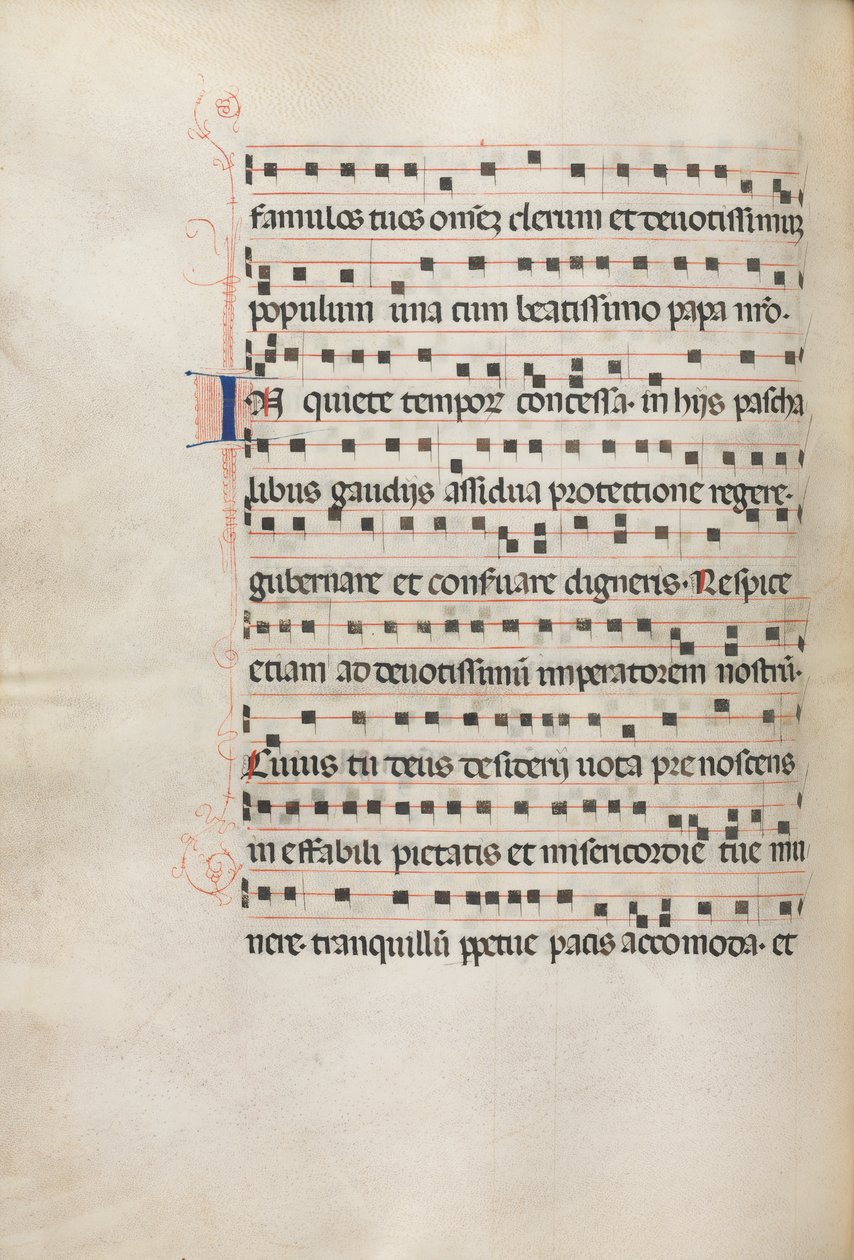 famulos tuos om̄ez clerum et deuotissimuꝫ
populum una cum beatissimo papa nr̄o.
IN quiete tempoꝝ concessa. in hijs pascha
libus gaudijs assidua protectione regere.
gubernare et conẛuare digneris. Respice
etiam ad deuotissimū imperatorem nostrū.
Cuius tu deus desiderij uota pre noscens
in effabili pietatis et misericordie tue mu
nere. tranquillū ꝑpetue pacis accomoda. et